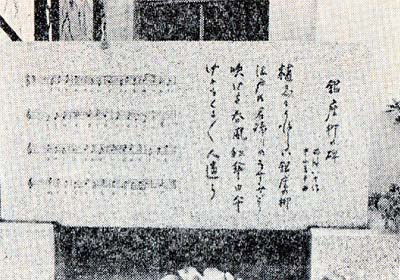 銀座柳の碑
西條八十 作
中山晋平 曲
植ゑてうれしい銀座の柳
江戸の名残りのうすみどり
吹けよ春風紅傘日傘
けふもくるくる人通り